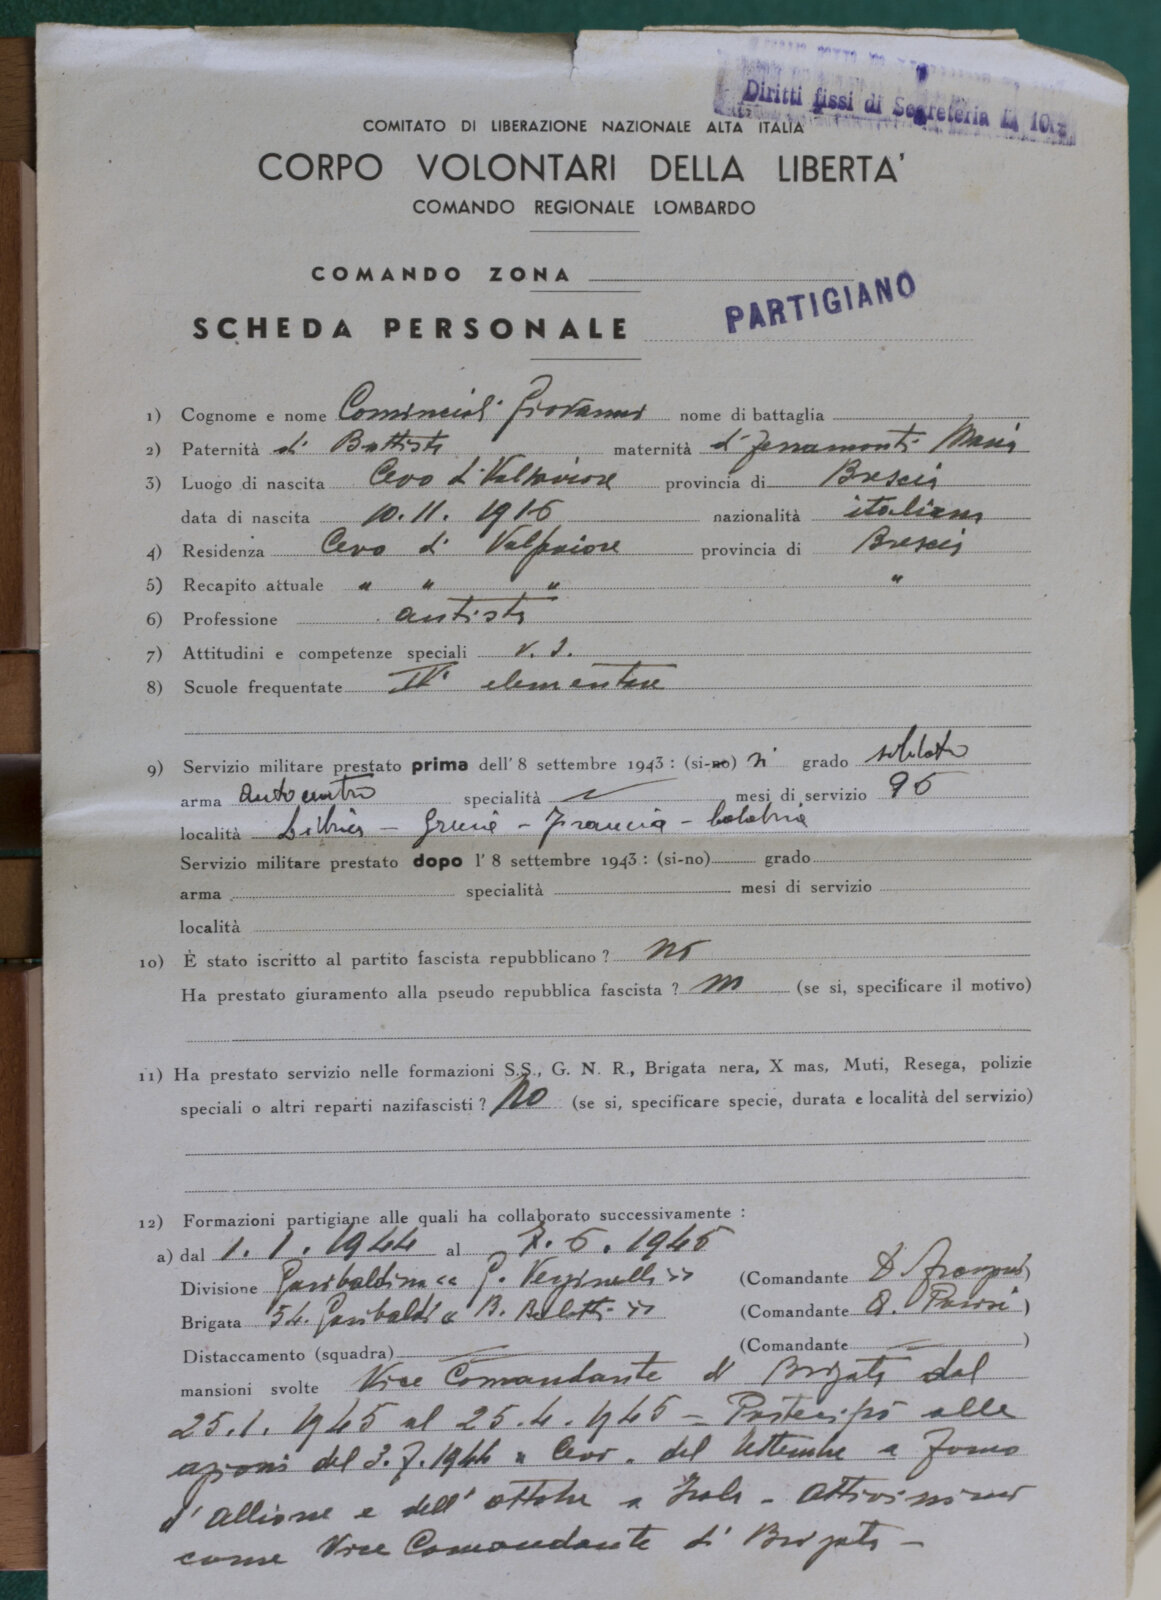 Diritti fissi di Segreteria L. 10.=
COMITATO DI LIBERAZIONE NAZIONALE ALTA ITALIA
CORPO VOLONTARI DELLA LIBERTA'
COMANDO REGIONALE LOMBARDO
COMANDO ZONA
SCHEDA PERSONALE PARTIGIANO
1) Cognome e nome Comincioli Giovanni nome di battaglia
2) Paternità di Battista maternità di Zerramonti Maria
3) Luogo di nascita Cevo di Valsaviore provincia di Brescia
data di nascita 10.11.1916 nazionalità italiana
4) Residenza Cevo di Valsaviore provincia di Brescia
5) Recapito attuale " " " "
6) Professione autista
7) Attitudini e competenze speciali
8) Scuole frequentate IVª elementare
9) Servizio militare prestato prima dell'8 settembre 1943: (si-no) si grado soldato
arma autocentro specialità mesi di servizio 96
località Libia - Grecia - Francia - Calabria
Servizio militare prestato dopo l'8 settembre 1943: (si-no) grado
arma specialità mesi di servizio
località
10) È stato iscritto al partito fascista repubblicano? no
Ha prestato giuramento alla pseudo repubblica fascista? no (se si, specificare il motivo)
11) Ha prestato servizio nelle formazioni S.S., G. N. R., Brigata nera, X mas, Muti, Resega, polizie
speciali o altri reparti nazifascisti? NO (se si, specificare specie, durata e località del servizio)
12) Formazioni partigiane alle quali ha collaborato successivamente:
a) dal 1.1.1944 al 7.5.1945
Divisione Garibaldina « » (Comandante )
Brigata 54. Garibaldi « B. » (Comandante Parisi)
Distaccamento (squadra) (Comandante )
mansioni svolte Vice Comandante di Brigata dal
25.1.1945 al 25.4.1945 - Partecipò alle
azioni del 3.7.1944 a Cevo. del settembre a Forno
d'Allione e dell'ottobre a Isola - attivissimo
come Vice Comandante di Brigata -